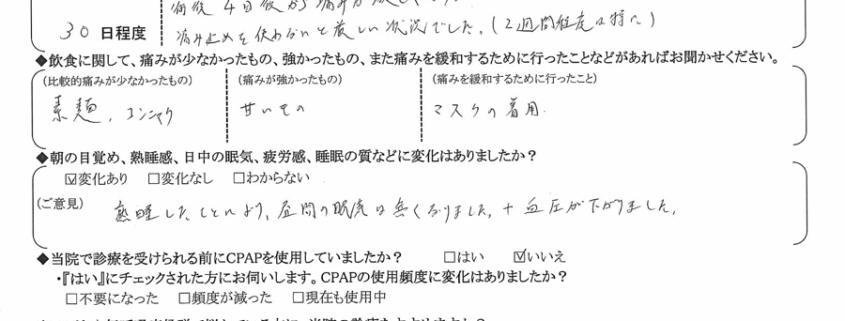 術後4日後から痛みが
30 日程度
痛み止めを使わないと厳しい状況でした。(2週間程度は特に)
◆飲食に関して、痛みが少なかったもの、強かったもの、また痛みを緩和するために行ったことなどがあればお聞かせください。
(比較的痛みが少なかったもの) (痛みが強かったもの) (痛みを緩和するために行ったこと)
素麺、コンニャク 甘いもの マスクの着用.
◆朝の目覚め、熟睡感、日中の眠気、疲労感、睡眠の質などに変化はありましたか?
☑変化あり □変化なし □わからない
(ご意見) 熟睡したことにより、昼間の眠気は無くなりました。+ 血圧が下がりました。
◆当院で診療を受けられる前にCPAPを使用していましたか? □はい ☑いいえ
・『はい』にチェックされた方にお伺いします。CPAPの使用頻度に変化はありましたか?
□不要になった □頻度が減った □現在も使用中